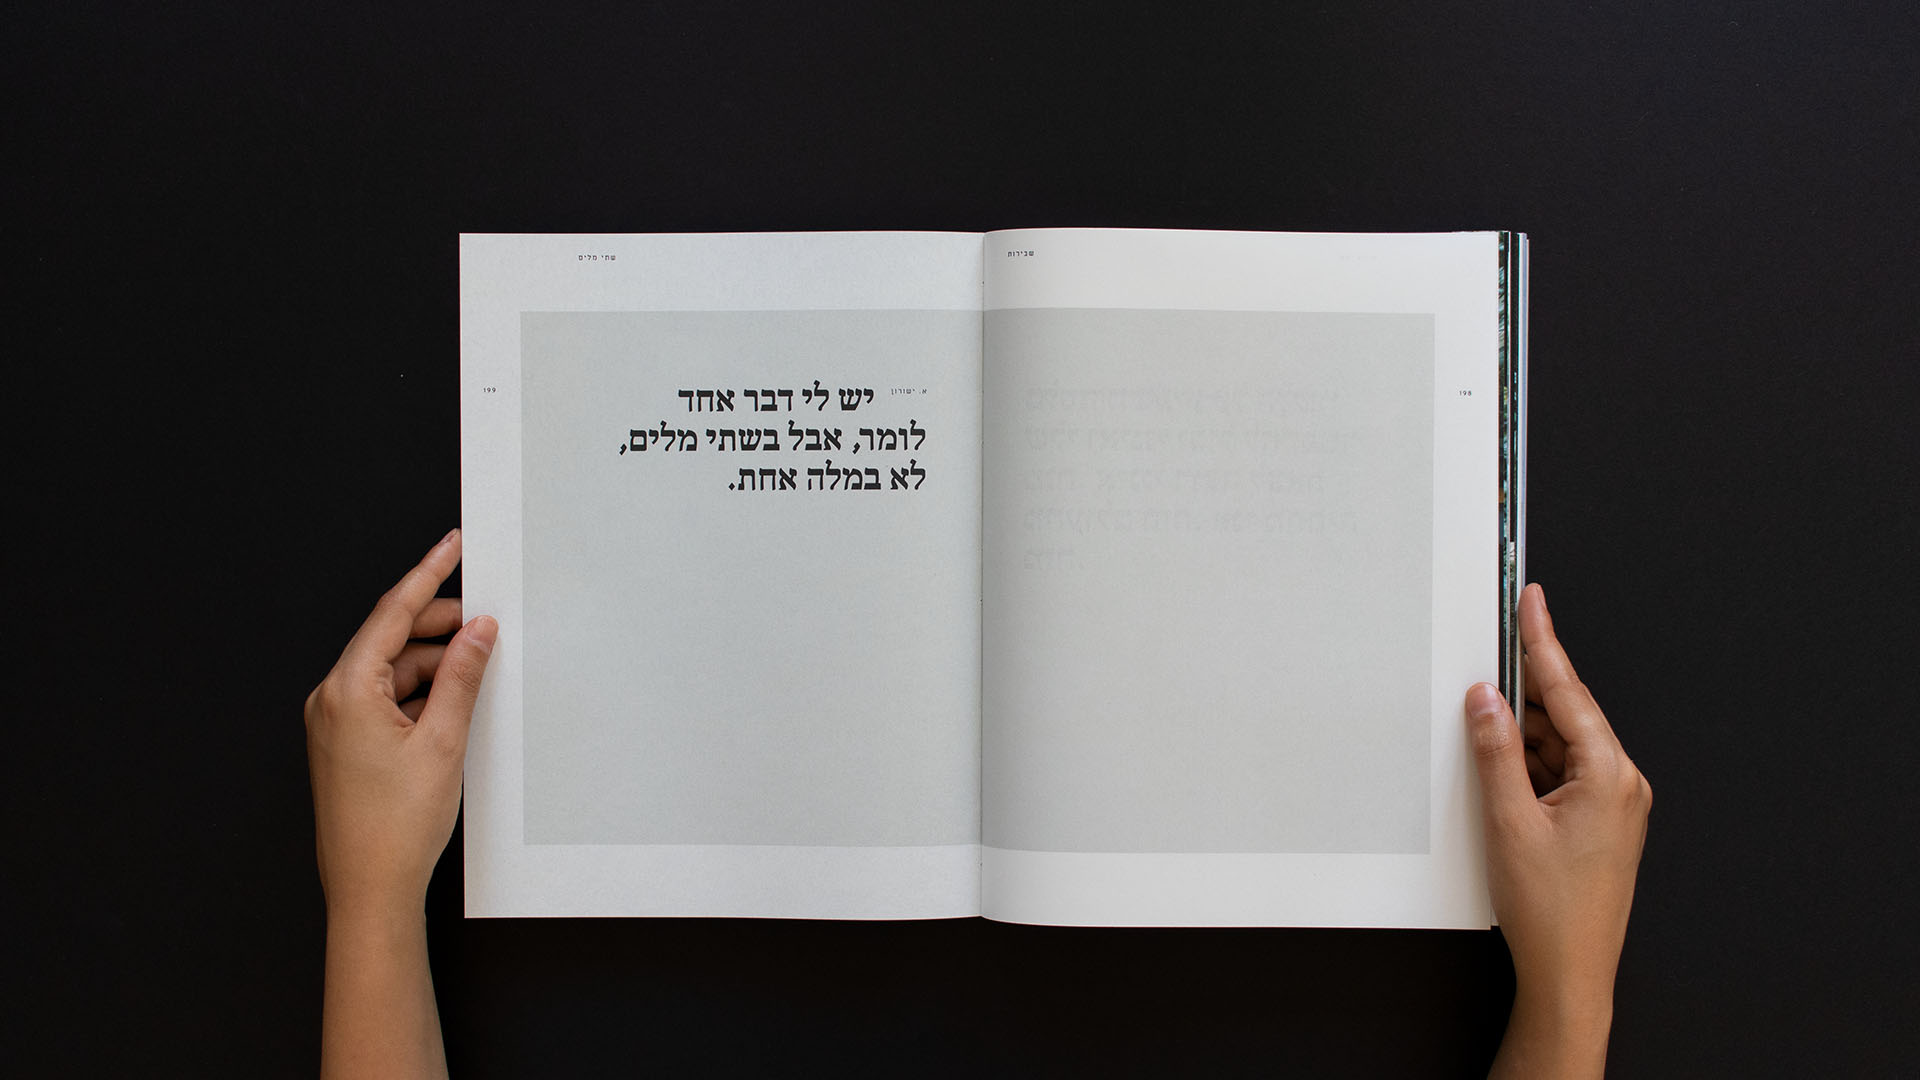 שבירות
198
שתי מלים
199
א. ישורון
יש לי דבר אחד
לומר, אבל בשתי מלים,
לא במלה אחת.